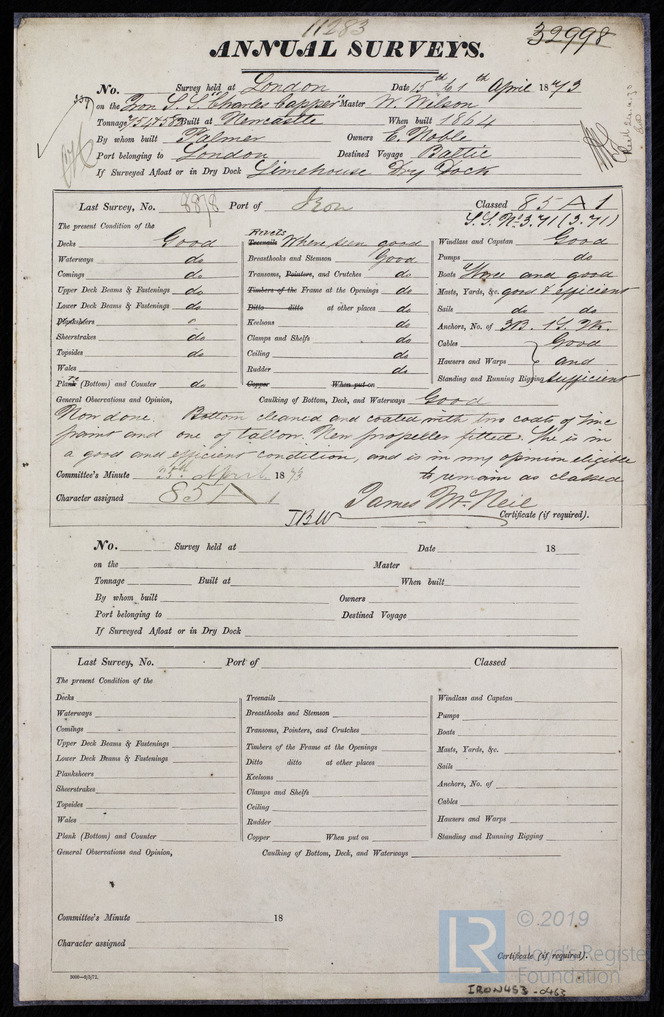 11283
32998
ANNUAL SURVEYS.
No. Survey held at London Date 15th & 1th April 1873
on the Iron S.S. "Charles Capper" Master W. Wilson
Tonnage Built at Newcastle When built 1864
By whom built Palmer Owners C. Noble
Port belonging to London Destined Voyage Baltic
If Surveyed Afloat or in Dry Dock Limehouse Dry Dock
Last Survey, No. 8878 Port of Iron Classed 85 A 1
S.S. No 3. 71 (3.71)
The present Condition of the
Decks Good
Waterways do
Comings do
Upper Deck Beams & Fastenings do
Lower Deck Beams & Fastenings do
Planksheers
Sheerstrakes do
Topsides do
Wales
Plank (Bottom) and Counter do
Rivets
Treenails Where seen good
Breasthooks and Stemson Good
Transoms, Pointers, and Crutches do
Timbers of the Frame at the Openings do
Ditto ditto at other places do
Keelsons do
Clamps and Shelfs do
Ceiling do
Rudder do
Copper When put on
Windlass and Capstan Good
Pumps do
Boats Three and good
Masts, Yards, &c. good & efficient
Sails do do
Anchors, No. of 3B. 1S. 2K.
Cables Good
Hawsers and Warps and
Standing and Running Rigging sufficient
General Observations and Opinion, Caulking of Bottom, Deck, and Waterways Good
Now done. Bottom cleaned and coated with two coats of zinc
paint and one of tallow. New propeller fitted. She is in
a good and efficient condition, and is in my opinion eligible
to remain as classed
Committee's Minute 25th April 1873
Character assigned 85 A 1
James McNeil
JBW
Certificate (if required).
No. Survey held at Date 18
on the Master
Tonnage Built at When built
By whom built Owners
Port belonging to Destined Voyage
If Surveyed Afloat or in Dry Dock
Last Survey, No. Port of Classed
The present Condition of the
Decks
Waterways
Comings
Upper Deck Beams & Fastenings
Lower Deck Beams & Fastenings
Planksheers
Sheerstrakes
Topsides
Wales
Plank (Bottom) and Counter
Treenails
Breasthooks and Stemson
Transoms, Pointers, and Crutches
Timbers of the Frame at the Openings
Ditto ditto at other places
Keelsons
Clamps and Shelfs
Ceiling
Rudder
Copper When put on
Windlass and Capstan
Pumps
Boats
Masts, Yards, &c.
Sails
Anchors, No. of
Cables
Hawsers and Warps
Standing and Running Rigging
General Observations and Opinion, Caulking of Bottom, Deck, and Waterways
Committee's Minute 18
Character assigned
Certificate (if required).
LR © 2019
Lloyd's Register
Foundation
IRON453-0463